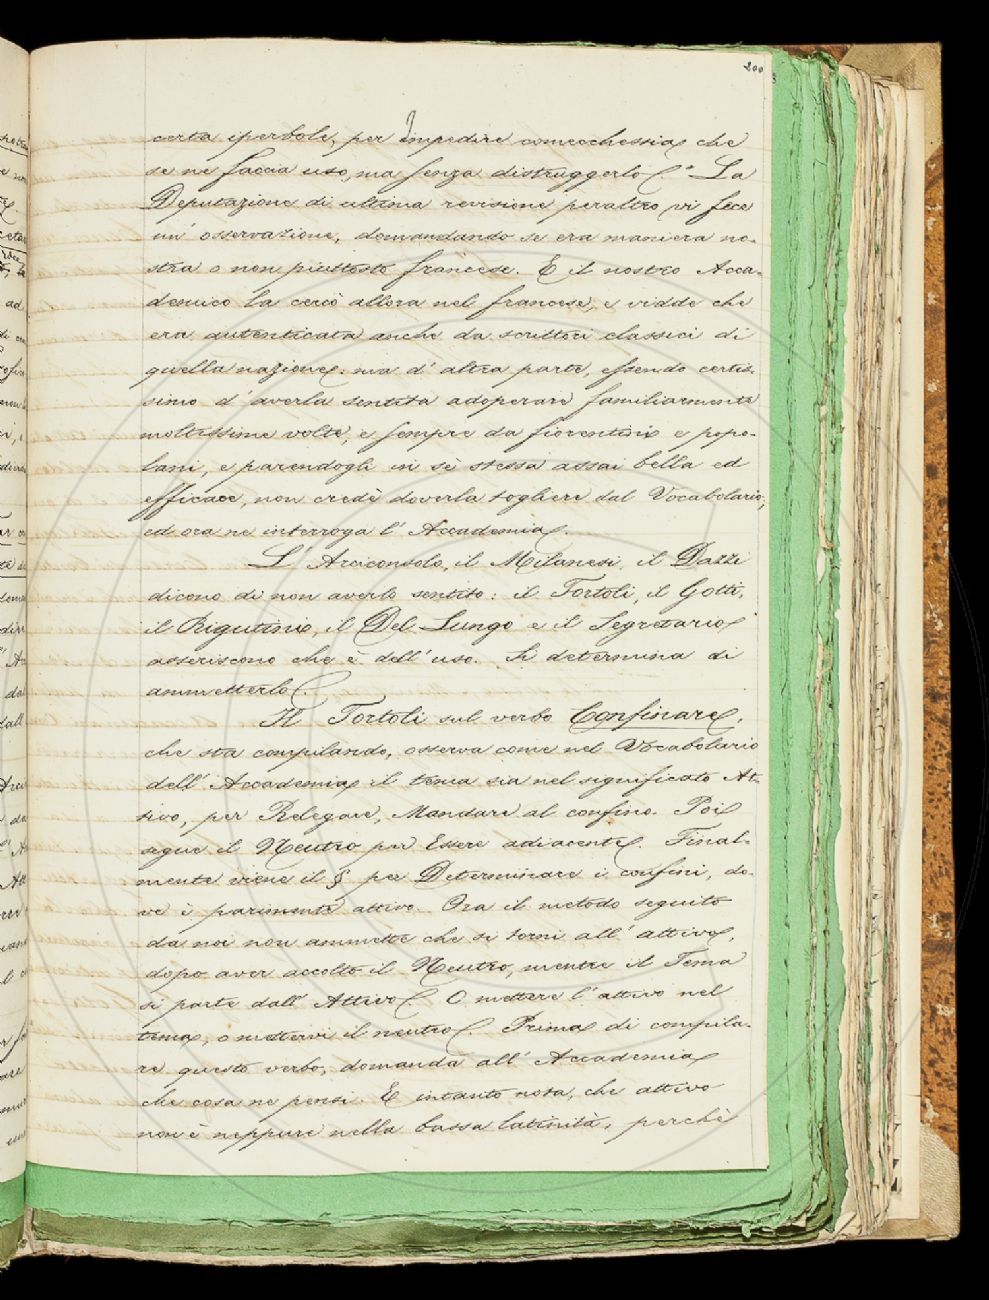 200
certa iperbole, per impedire comecchessia che
se ne faccia uso, ma senza distruggerlo." La
Deputazione di ultima revisione peraltro vi fece
un' osservazione, domandando se era maniera no-
stra o non piuttosto francese. E il nostro Acca-
demico la cercò allora nel francese, e vidde che
era autenticata anche da scrittori classici di
quella nazione: ma d' altra parte, essendo certis-
simo d' averla sentita adoperare familiarmente
moltissime volte, e sempre da fiorentini e popo-
lani, e parendogli in sè stessa assai bella ed
efficace, non credè doverla togliere dal Vocabolario;
ed ora ne interroga l' Accademia.
L' Arciconsolo, il Milanesi, il Dazzi
dicono di non averlo sentito: il Tortoli, il Gotti,
il Rigutini, il Del Lungo e il Segretario
asseriscono che è dell' uso. Si determina di
ammetterlo.
Il Tortoli sul verbo Confinare,
che sta compilando, osserva come nel Vocabolario
dell' Accademia il tema sia nel significato At-
tivo, per Relegare, Mandare al confino. Poi
segue il Neutro per Essere adiacente. Final-
mente viene il § per Determinare i confini, do-
ve è parimente attivo. Ora il metodo seguito
da noi non ammette che si torni all' attivo,
dopo aver accolto il Neutro, mentre il Tema
si parte dall' Attivo. O mettere l' attivo nel
tema, o mettervi il neutro. Prima di compila-
re questo verbo, domanda all' Accademia
che cosa ne pensi. E intanto nota, che attivo
non è neppure nella bassa latinità, perchè